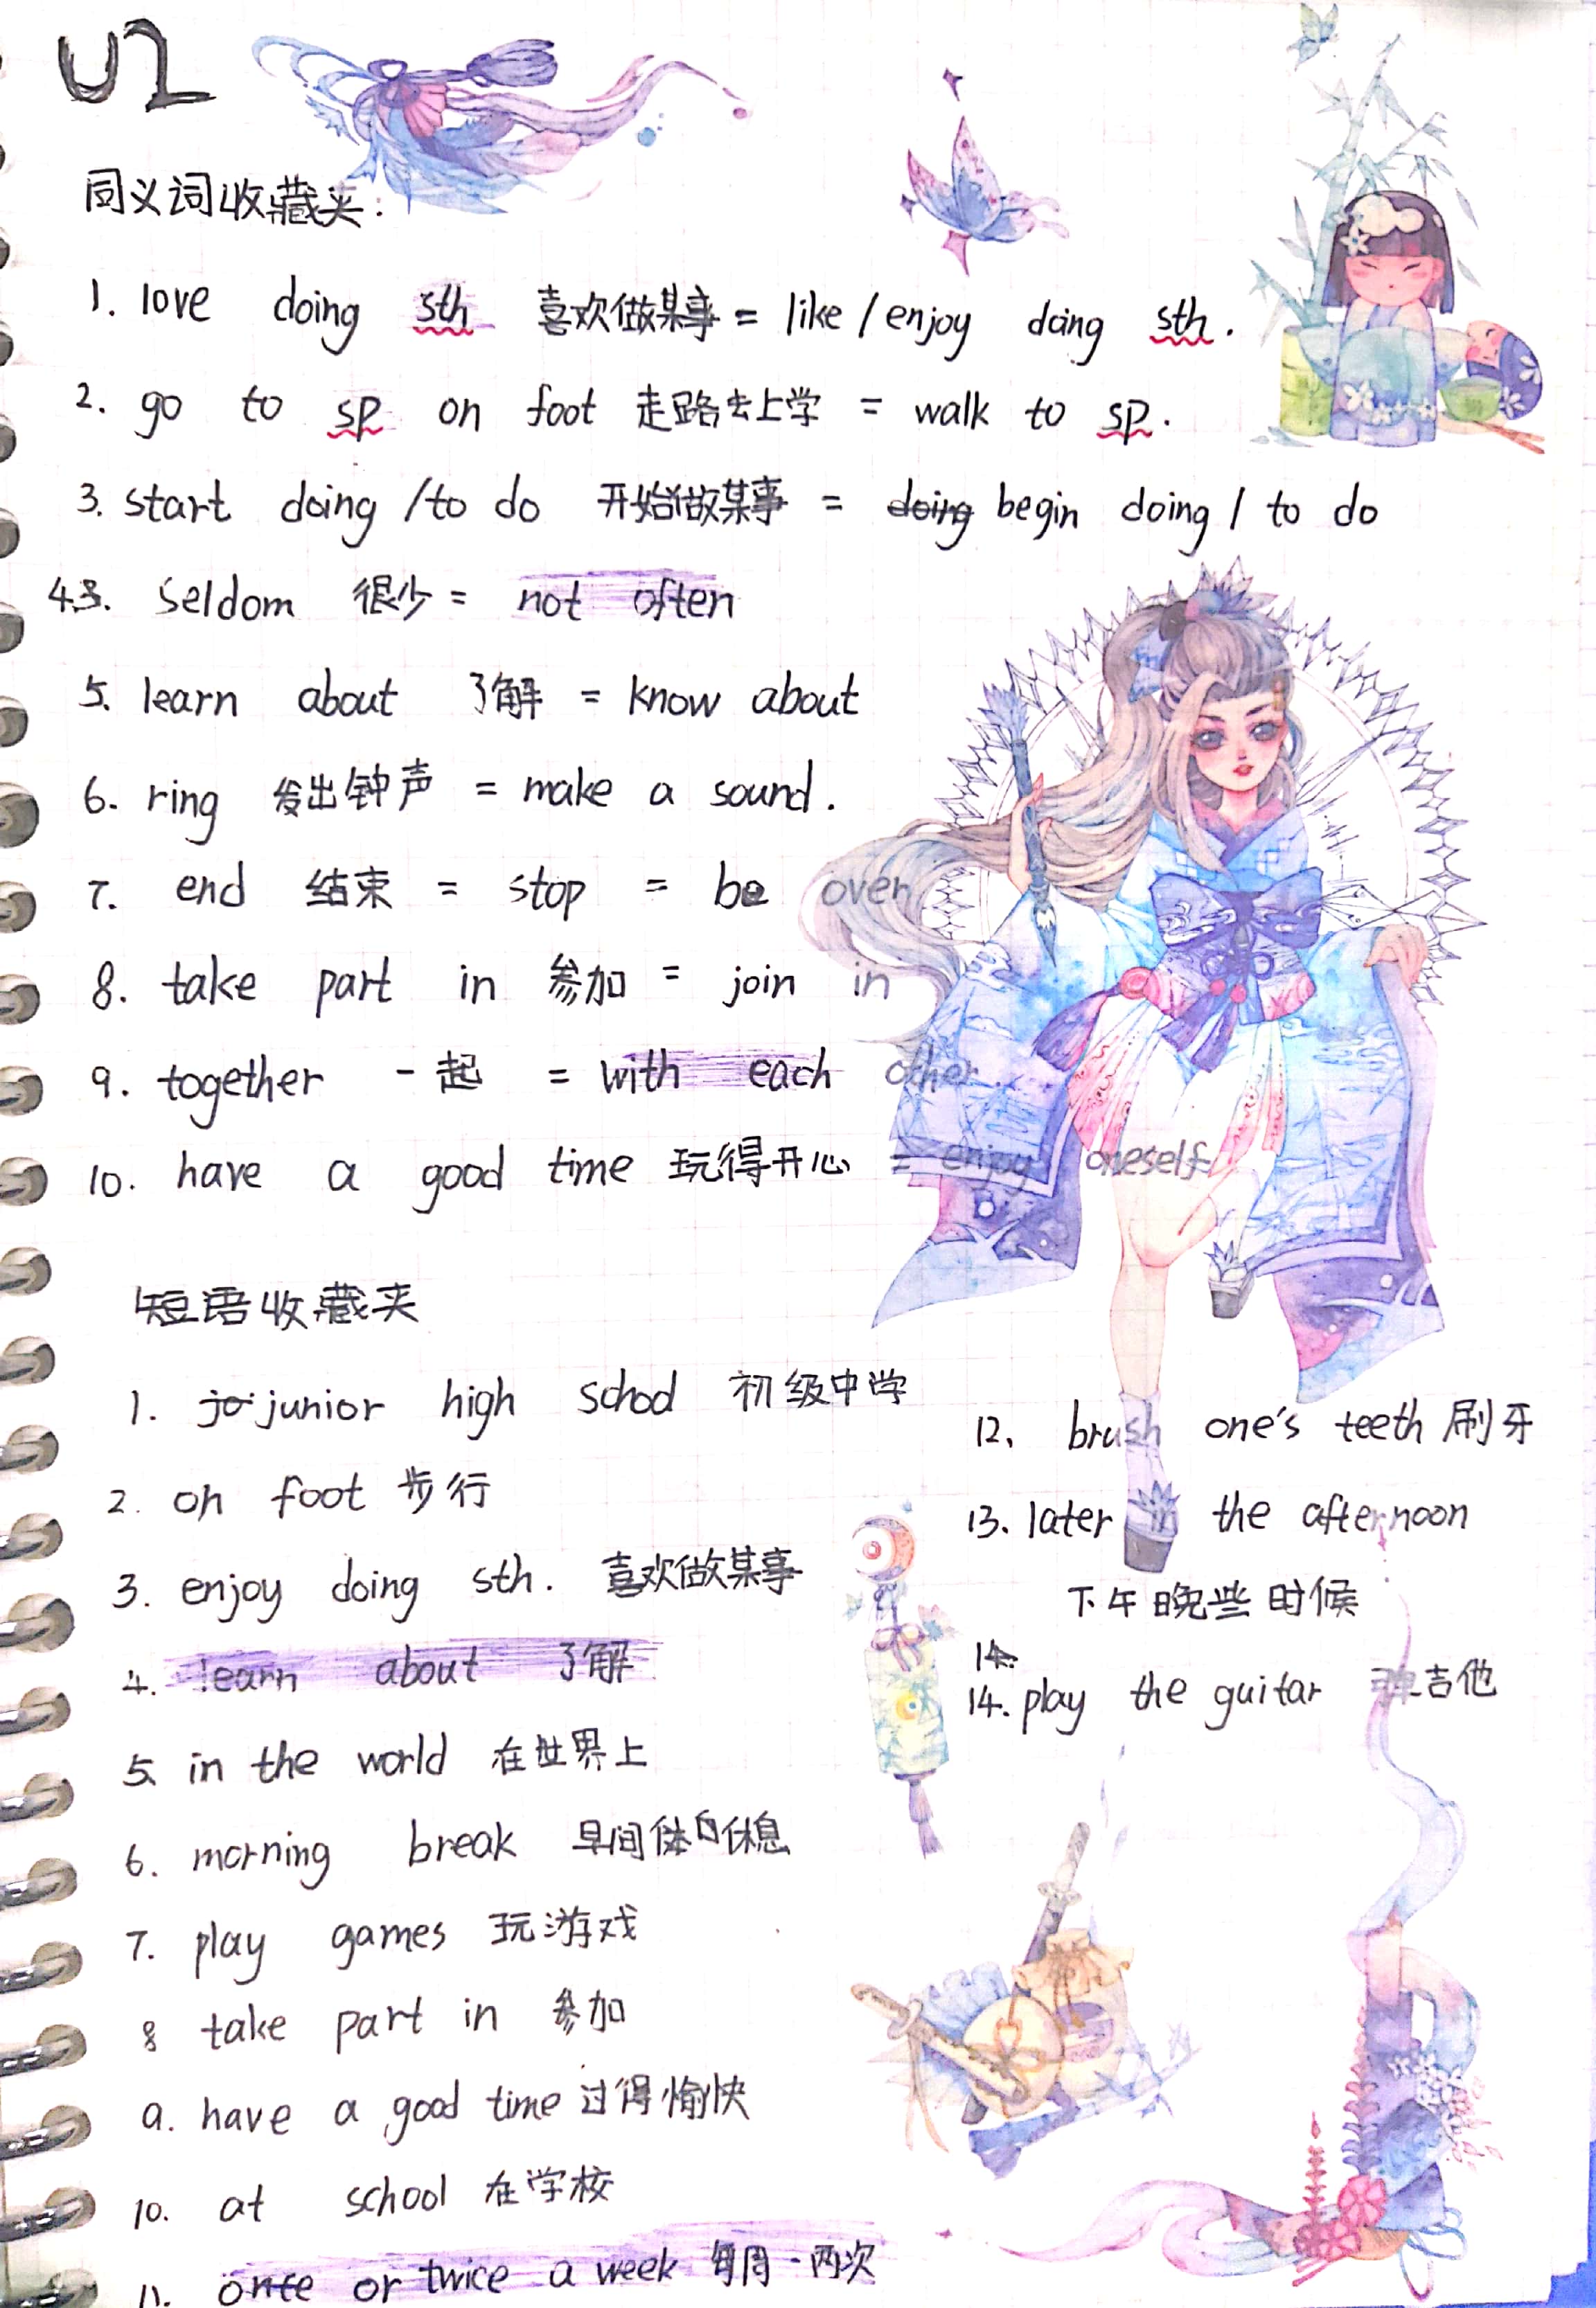 U2
同义词收藏夹：
1. love doing sth 喜欢做某事 = like / enjoy doing sth.
2. go to sp on foot 走路去上学 = walk to sp.
3. start doing / to do 开始做某事 = doing begin doing / to do
4. seldom 很少 = not often
5. learn about 了解 = know about
6. ring 发出钟声 = make a sound.
7. end 结束 = stop = be over
8. take part in 参加 = join in
9. together 一起 = with each other
10. have a good time 玩得开心 = enjoy oneself
短语收藏夹
1. jo junior high school 初级中学
2. on foot 步行
3. enjoy doing sth. 喜欢做某事
4. learn about 了解
5. in the world 在世界上
6. morning break 早间休息
7. play games 玩游戏
8 take part in 参加
9. have a good time 过得愉快
10. at school 在学校
11. once or twice a week 每周一两次
12. brush one's teeth 刷牙
13. later in the afternoon
下午晚些时候
14.
14. play the guitar 弹吉他